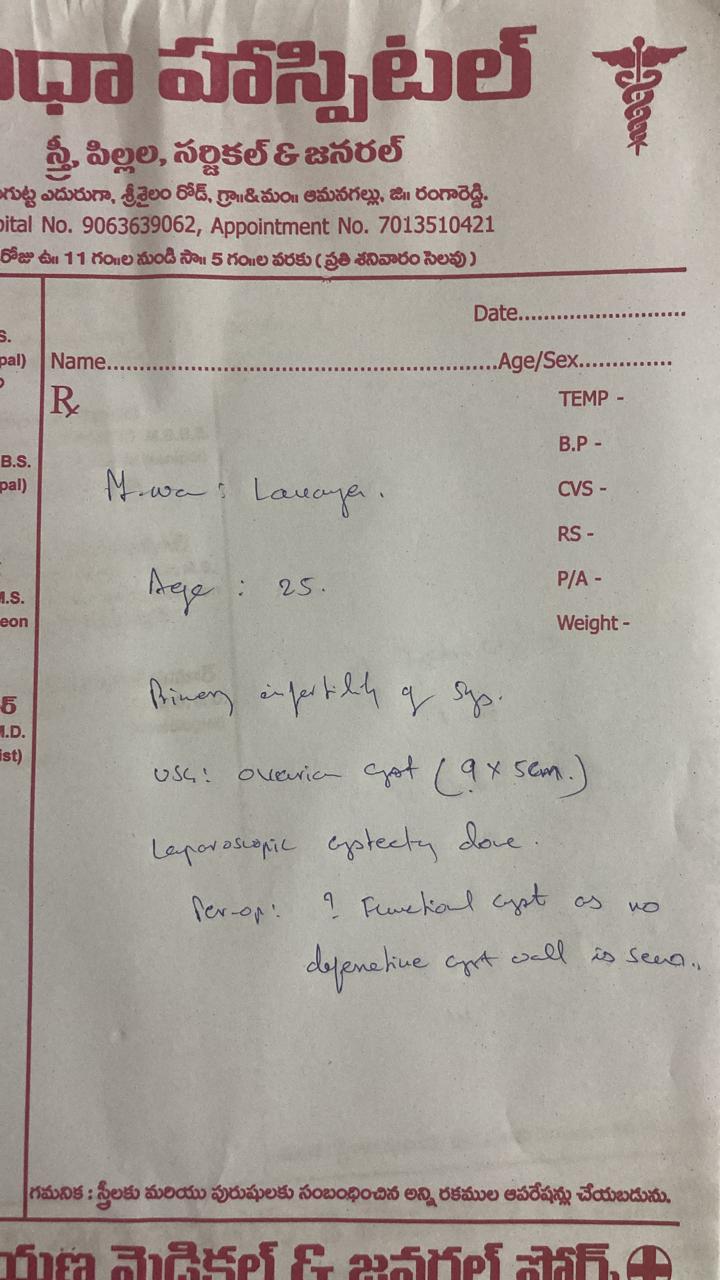 ధా హాస్పిటల్
స్త్రీ, పిల్లల, సర్జికల్ & జనరల్
గుట్ట ఎదురుగా, శ్రీశైలం రోడ్, గ్రా॥&మం॥ ఆమనగల్లు, జి॥ రంగారెడ్డి.
ital No. 9063639062, Appointment No. 7013510421
రోజు ఉ॥ 11 గం॥ల నుండి సా॥ 5 గం॥ల వరకు ( ప్రతి శనివారం సెలవు )
Date
Name Age/Sex
S.
pal)
℞
TEMP -
B.P -
B.S.
pal)
CVS -
RS -
P/A -
Weight -
Age : 25.
M.S.
eon
Primary infertility of
USG: ovarian cyst (9 x 5cm.)
I.D.
ist)
Laparoscopic cystecty done.
Per-op: ? Functional cyst as no
definetive cyst wall is seen.
గమనిక : స్త్రీలకు మరియు పురుషులకు సంబంధించిన అన్ని రకముల ఆపరేషన్లు చేయబడును.
యణ మెడికల్ & జనరల్ స్టోర్స్